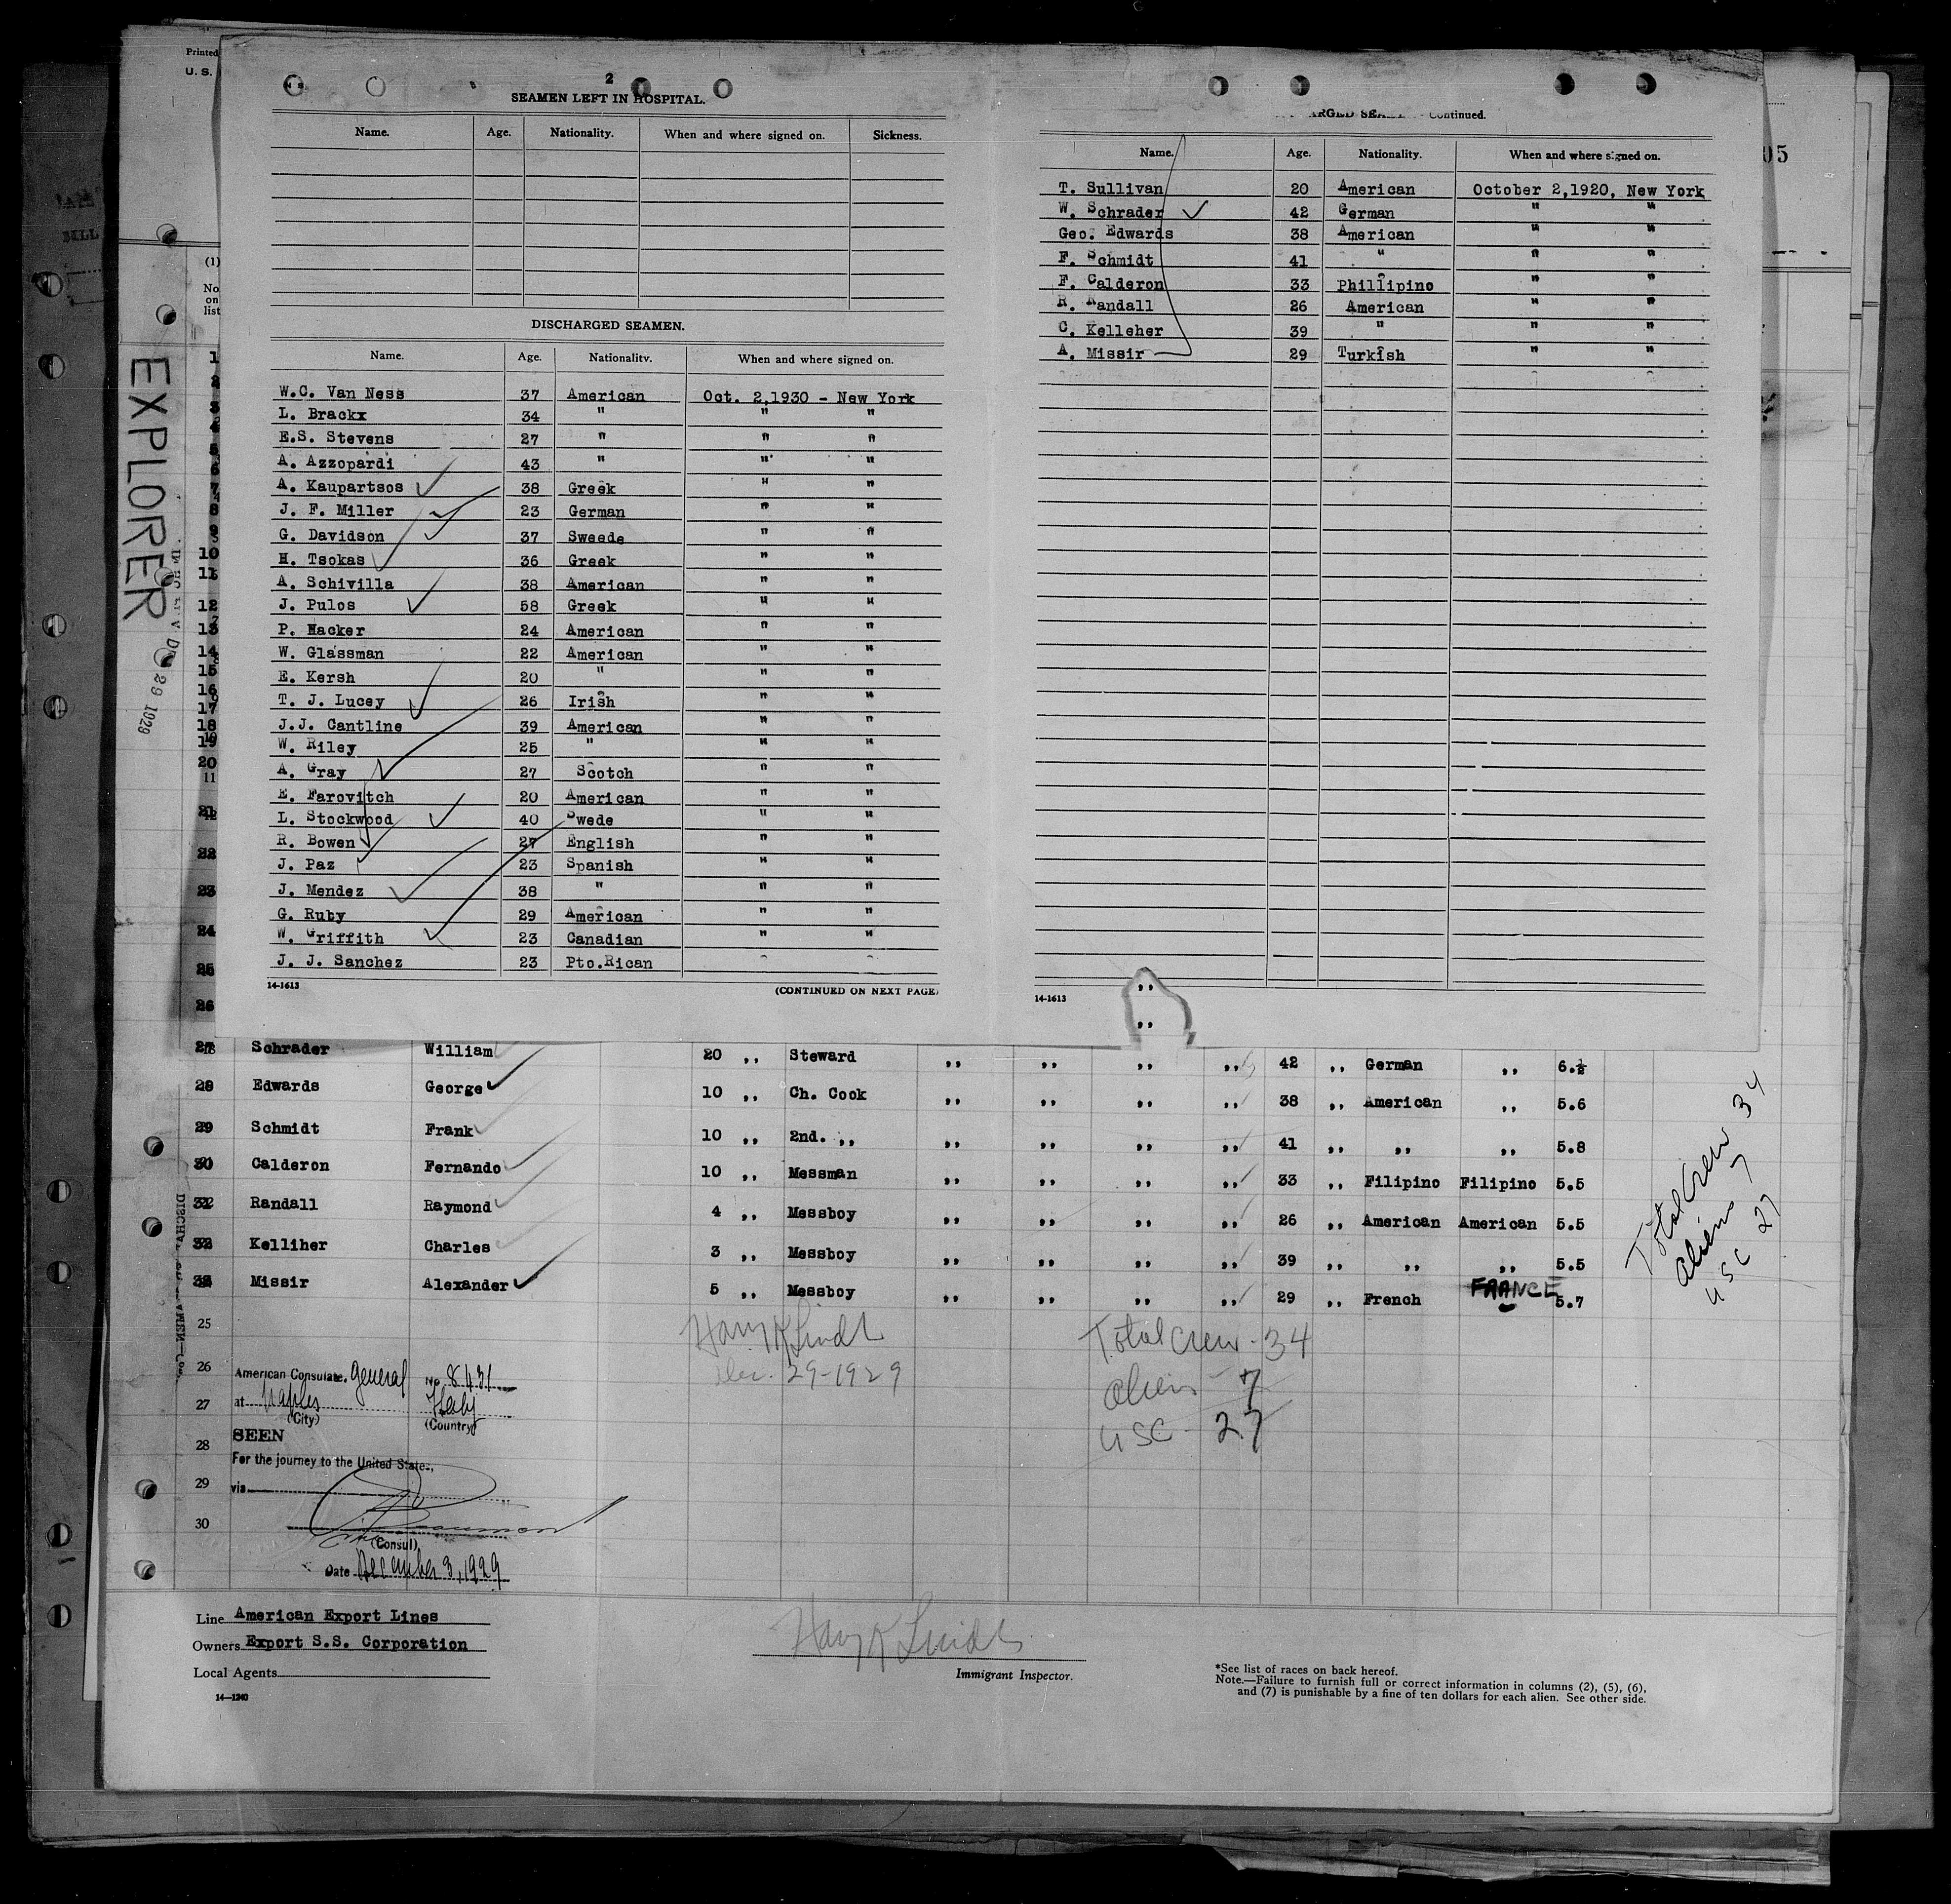 Printed
U. S.
2
SEAMEN LEFT IN HOSPITAL.
Name. Age. Nationality. When and where signed on. Sickness.
DISCHARGED SEAMEN.
Name. Age. Nationality. When and where signed on.
W.C. Van Ness 37 American Oct. 2,1930 - New York
L. Brackx 34 " " "
E.S. Stevens 27 " " "
A. Azzopardi 43 " " "
A. Kaupartsos 38 Greek " "
J. F. Miller 23 German " "
G. Davidson 37 Sweede " "
H. Tsokas 36 Greek " "
A. Schivilla 38 American " "
J. Pulos 58 Greek " "
P. Hacker 24 American " "
W. Glassman 22 American " "
E. Kersh 20 " " "
T. J. Lucey 26 Irish " "
J.J. Cantline 39 American " "
W. Riley 25 " " "
A. Gray 27 Scotch " "
E. Farovitch 20 American " "
L. Stockwood 40 Swede " "
R. Bowen 27 English " "
J. Paz 23 Spanish " "
J. Mendez 38 " " "
G. Ruby 29 American " "
W. Griffith 23 Canadian " "
J. J. Sanchez 23 Pto.Rican
14-1613 (CONTINUED ON NEXT PAGE)
Continued.
Name. Age. Nationality. When and where signed on.
T. Sullivan 20 American October 2,1920, New York
W. Schrader 42 German " "
Geo. Edwards 38 American " "
F. Schmidt 41 " " "
F. Calderon 33 Phillipino " "
R. Randall 26 American " "
C. Kelleher 39 " " "
A. Missir 29 Turkish " "
14-1613
05
(1)
No.
on
list
EXPLORER
29 1929
1
2
3
4
5
6
7
8
9
10
11
12
13
14
15
16
17
18
19
20
11
21
22
23
24
25
26
,,
,,
27 Schrader William 20 ,, Steward ,, ,, ,, ,, 42 ,, German ,, 6.½
28 Edwards George 10 ,, Ch. Cook ,, ,, ,, ,, 38 ,, American ,, 5.6
29 Schmidt Frank 10 ,, 2nd. ,, ,, ,, ,, ,, 41 ,, ,, ,, 5.8
30 Calderon Fernando 10 ,, Messman ,, ,, ,, ,, 33 ,, Filipino Filipino 5.5
Randall Raymond 4 ,, Messboy ,, ,, ,, ,, 26 ,, American American 5.5
Kelliher Charles 3 ,, Messboy ,, ,, ,, ,, 39 ,, ,, ,, 5.5
Missir Alexander 5 ,, Messboy ,, ,, ,, ,, 29 ,, French FRANCE 5.7
25
26
27
28
29
30
Total Crew 34
aliens 7
USC 27
Harry K Lindt
Dec. 29-1929
Total Crew - 34
aliens - 7
USC - 27
American Consulate General No. 8431
at Naples Italy
(City) (Country)
SEEN
For the journey to the United States,
via
(Consul)
Date December 3, 1929
Line American Export Lines
Owners Export S.S. Corporation
Local Agents
14-1240
Harry K Lindt
Immigrant Inspector.
*See list of races on back hereof.
Note.—Failure to furnish full or correct information in columns (2), (5), (6),
and (7) is punishable by a fine of ten dollars for each alien. See other side.